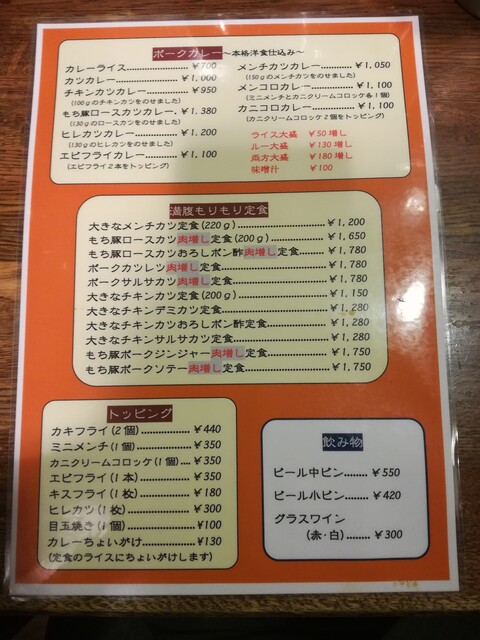 ポークカレー～本格洋食仕込み～
カレーライス…………………￥700
カツカレー……………………￥1,000
チキンカツカレー……………￥950
(100gのチキンカツをのせました)
もち豚ロースカツカレー‥￥1.380
(130gのロースカツをのせました)
ヒレカツカレー………………￥1.200
(130gのヒレカツをのせました)
エビフライカレー……………￥1.100
(エビフライ2本をトッピング)
メンチカツカレー……￥1,050
(150gのメンチカツをのせました)
メンコロカレー…………￥1.100
(ミニメンチとカニクリームコロッケ各1個)
カニコロカレー…………￥1,100
(カニクリームコロッケ2個をトッピング)
ライス大盛 ￥50増し
ルー大盛 ￥130増し
両方大盛 ￥180増し
味噌汁 ￥100
満腹もりもり定食
大きなメンチカツ定食(220g)……………………￥1,200
もち豚ロースカツ肉増し定食(200g)……………￥1,650
もち豚ロースカツおろしポン酢肉増し定食………￥1,780
ポークカツレツ肉増し定食…………………………￥1,780
ポークサルサカツ肉増し定食………………………￥1,780
大きなチキンカツ定食(200g)……………………￥1,150
大きなチキンデミカツ定食…………………………￥1,280
大きなチキンカツおろしポン酢定食………………￥1,280
大きなチキンサルサカツ定食………………………￥1,280
もち豚ポークジンジャー肉増し定食………………￥1,750
もち豚ポークソテー肉増し定食……………………￥1,750
トッピング
カキフライ(2個)………………￥440
ミニメンチ(1個)………………￥350
カニクリームコロッケ(1個)…￥350
エビフライ(1本)………………￥350
キスフライ(1枚)………………￥180
ヒレカツ(1枚)…………………￥300
目玉焼き(1個)…………………￥100
カレーちょいがけ………………￥130
(定食のライスにちょいがけします)
飲み物
ビール中ビン………￥550
ビール小ビン………￥420
グラスワイン
(赤・白)………￥300